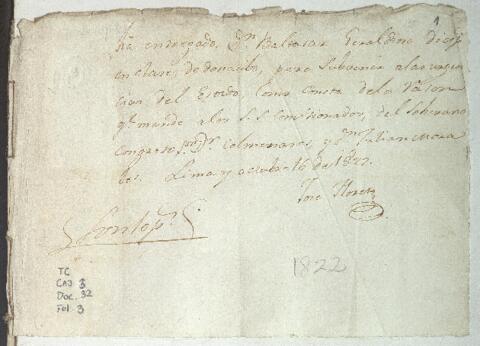 1
Ha entregado Dn Baltasar Geraldino dies p
en clase de donacion, para subvenir a las urgen
cias del Exercto, como consta de la razon
qe mande a los S.S. Comisionados, del Soberano
Congreso, Colmenares, y Dn Julian Mora
les. Lima y octubre 16 de 1822.
Jose Flores
1822
TC
CAJ 3
Doc. 32
Fol. 3